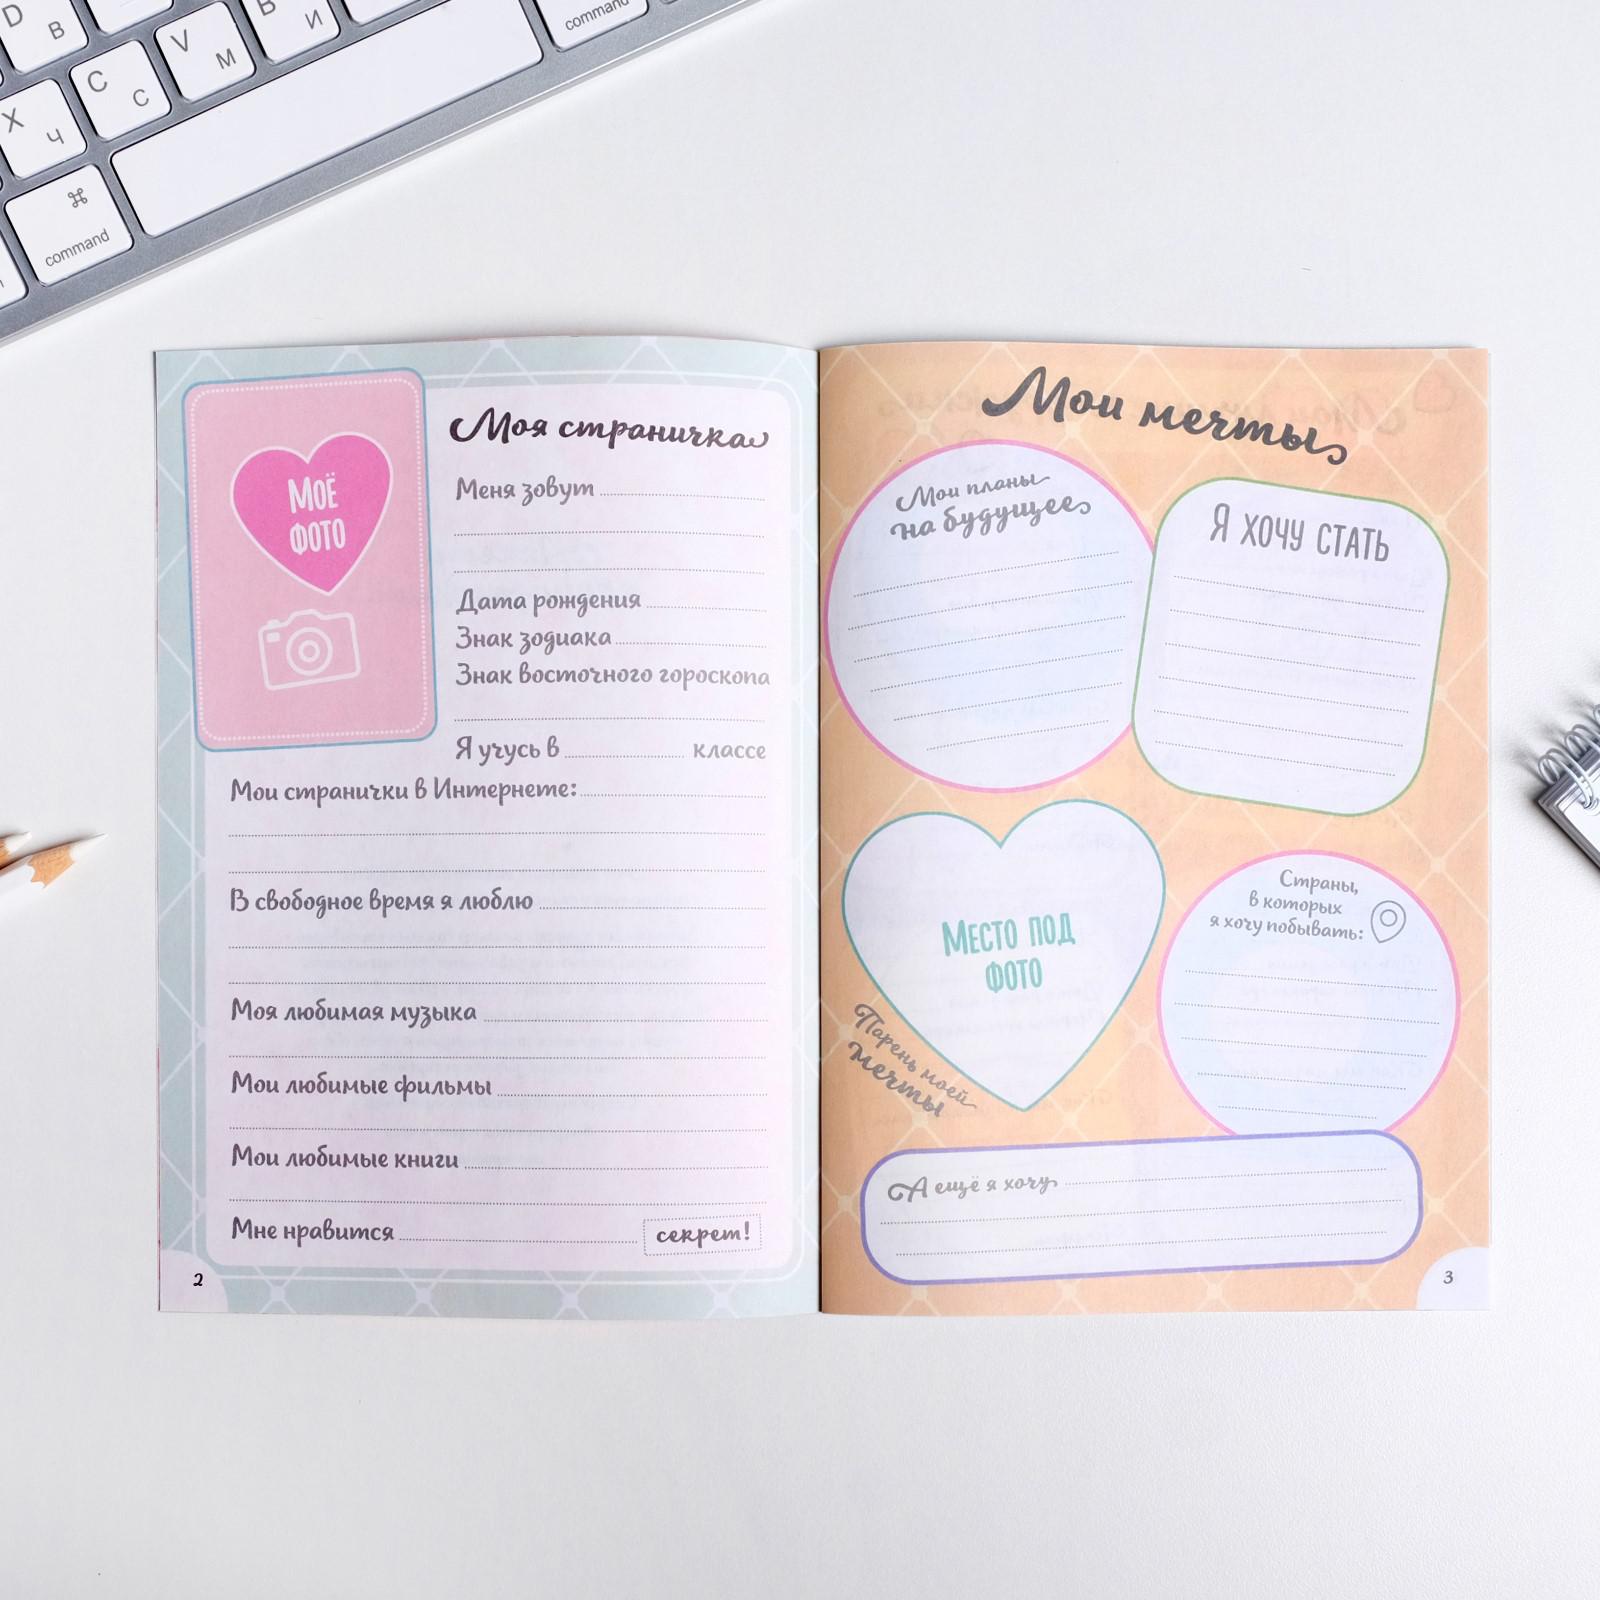 D В
В И
command
V М
C С
X Ч
⌘
command
Моё
фото
Моя страничка
Меня зовут
Дата рождения
Знак зодиака
Знак восточного гороскопа
Я учусь в классе
Мои странички в Интернете:
В свободное время я люблю
Моя любимая музыка
Мои любимые фильмы
Мои любимые книги
Мне нравится секрет!
2
Мои мечты
Мои планы
на будущее
Я хочу стать
Место под
фото
Парень моей
мечты
Страны,
в которых
я хочу побывать:
А ещё я хочу
3